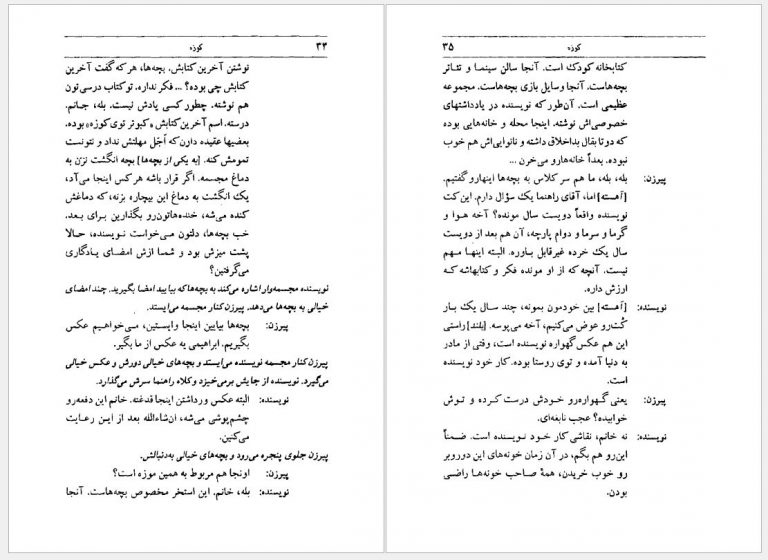 ۳۴ کوزه
نوشتن آخرین کتابش. بچه‌ها، هرکه گفت آخرین
کتابش چی بوده؟ ... فکر نداره. تو کتاب درسی‌تون
هم نوشته. چطور کسی یادش نیست. بله، جانم.
درسته. اسم آخرین کتابش «کبوتر توی کوزه» بوده.
بعضیها عقیده دارن که اَجَل مهلتش نداد و نتونست
تمومش کنه. [به یکی از بچه‌ها] بچه انگشت نزن به
دماغ مجسمه. اگر قرار باشه هرکس اینجا می‌آد،
یک انگشت به دماغ این بیچاره بزنه، که دماغش
کنده می‌شه، خنده‌هاتون‌رو بگذارین برای بعد.
خب بچه‌ها، دلتون می‌خواست نویسنده، حالا
پشت میزش بود و شما ازش امضای یادگاری
می‌گرفتین؟
نویسنده مجسمه‌وار اشاره می‌کند به بچه‌ها که بیایید امضا بگیرید. چند امضای
خیالی به بچه‌ها می‌دهد. پیرزن کنار مجسمه می‌ایستد.
پیرزن: بچه‌ها بیایین اینجا وایستین، می‌خواهیم عکس
بگیریم. ابراهیمی یه عکس از ما بگیر.
پیرزن کنار مجسمه نویسنده می‌ایستد و بچه‌های خیالی دورش و عکس خیالی
می‌گیرد. نویسنده از جایش برمی‌خیزد و کلاه راهنما سرش می‌گذارد.
نویسنده: البته عکس ورداشتن اینجا قدغنه. خانم این دفعه‌رو
چشم‌پوشی می‌شه، ان‌شاءالله بعد از این رعایت
می‌کنین.
پیرزن جلوی پنجره می‌رود و بچه‌های خیالی به‌دنبالش.
پیرزن: اونجا هم مربوط به همین موزه است؟
نویسنده: بله، خانم. این استخر مخصوص بچه‌هاست. آنجا
کوزه ۳۵
کتابخانه کودک است. آنجا سالن سینما و تئاتر
بچه‌هاست. آنجا وسایل بازی بچه‌هاست. مجموعه
عظیمی است. آن‌طور که نویسنده در یادداشتهای
خصوصی‌اش نوشته. اینجا محله و خانه‌هایی بوده
که دوتا بقال بداخلاق داشته و نانوایی‌اش هم خوب
نبوده. بعداً خانه‌هارو می‌خرن ...
پیرزن: بله، بله، ما هم سر کلاس به بچه‌ها اینهارو گفتیم.
[آهسته] اما، آقای راهنما یک سؤال دارم. این کت
نویسنده واقعاً دویست سال مونده؟ آخه هوا و
گرما و سرما و دوام پارچه، آن هم بعد از دویست
سال یک خرده غیرقابل باوره. البته اینها مهم
نیست. آنچه که از او مونده فکر و کتابهاشه که
ارزش داره.
نویسنده: [آهسته] بین خودمون بمونه، چند سال یک بار
کُت‌رو عوض می‌کنیم، آخه می‌پوسه. [بلند] راستی
این هم عکس گهواره نویسنده است، وقتی از مادر
به دنیا آمده و توی روستا بوده. کار خود نویسنده
است.
پیرزن: یعنی گهواره‌رو خودش درست کرده و توش
خوابیده؟ عجب نابغه‌ای.
نویسنده: نه خانم، نقاشی کار خود نویسنده است. ضمناً
این‌رو هم بگم، در آن زمان خونه‌های این دوروبر
رو خوب خریدن، همهٔ صاحب خونه‌ها راضی
بودن.